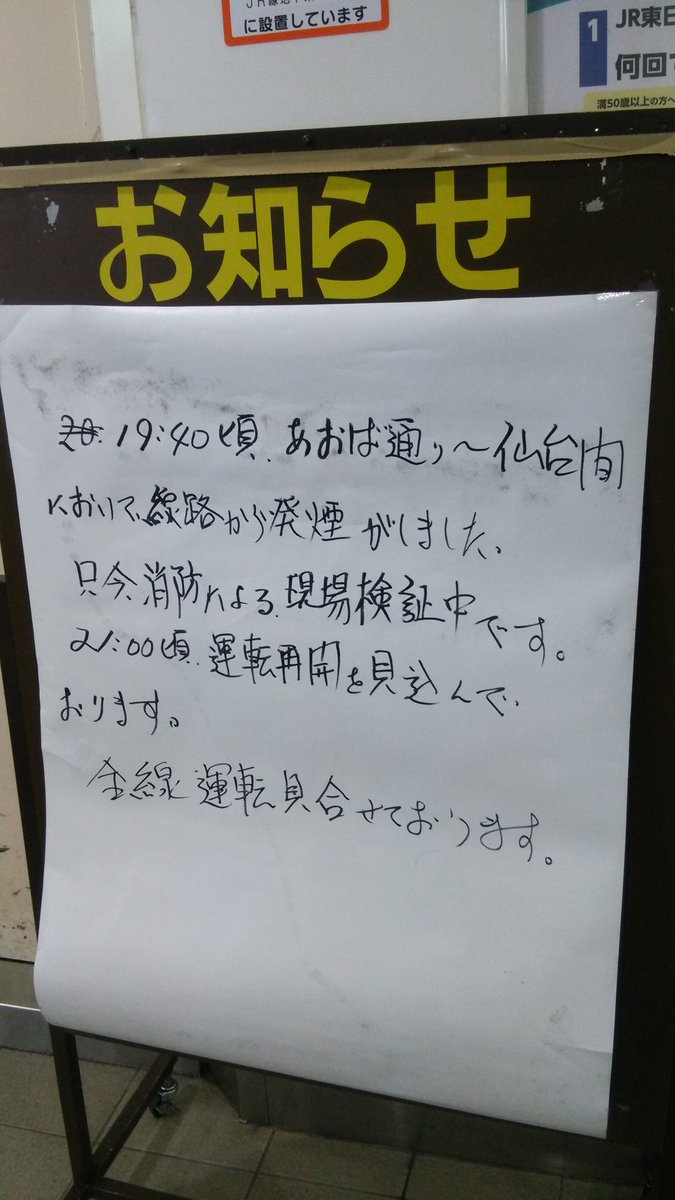 に設置しています
1
JR東日
何回
満50歳以上の方へ
お知らせ
19:40頃、あおば通り～仙台間
において、線路から発煙がしました、
只今、消防による、現場検証中です。
21:00頃、運転再開を見込んで、
おります。
全線運転見合せております。